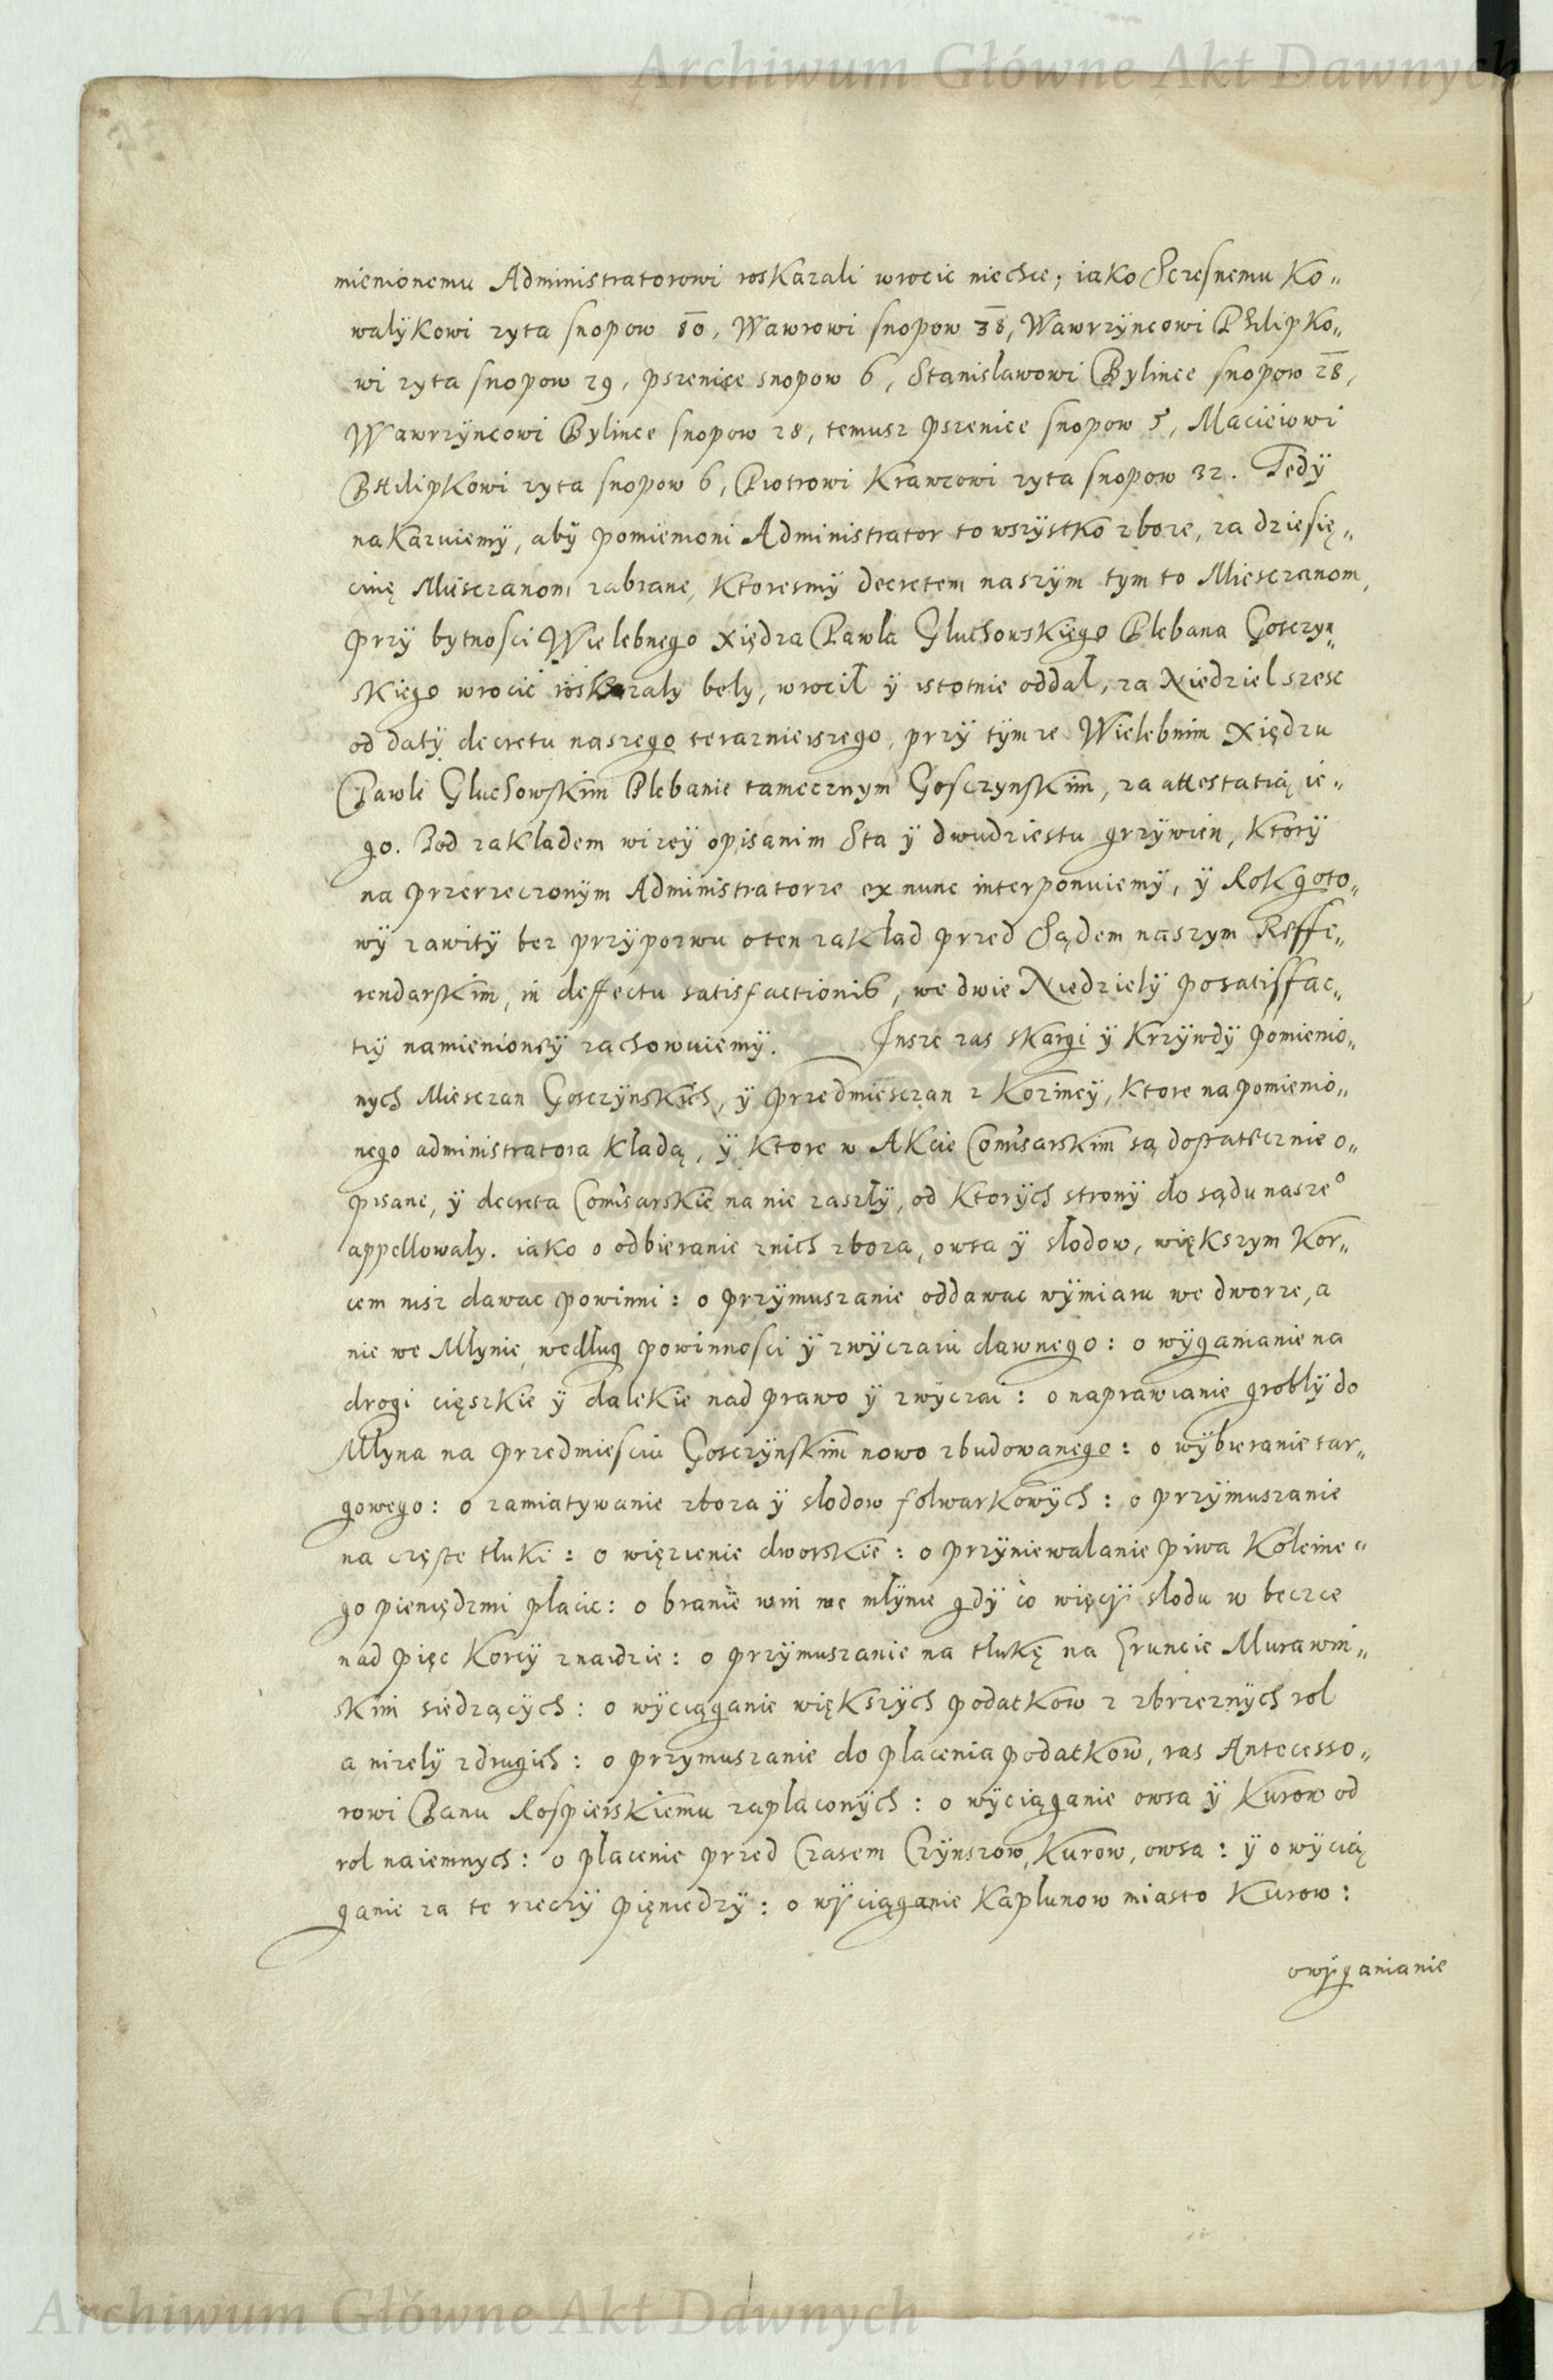 Archiwum Główne Akt Dawnych
mienionemu Administratorowi roskazali wrocic niechce; iako Sczesnemu Ko„
walÿkowi zyta snopow 80, Wawrowi snopow 38, Wawrzÿncowi Philipko„
wi zyta snopow 29, pszenice snopow 6, Stanislawowi Bylince snopow 28,
Wawrzÿncowi Bylince snopow 28, temusz pszenice snopow 5, Macieiowi
Philipkowi zyta snopow 6, Piotrowi Krawcowi zyta snopow 32. Tedÿ
nakazuiemÿ, abÿ pomienioni Administrator to wszÿstko zboze, za dziesię„
cinę Miesczanom zabrane, ktoresmÿ decretem naszÿm tym to Miesczanom,
przÿ bytnosci Wielebnego Xiędza Pawla Gluchowskięgo Plebana Gosczyn„
skiego wrocić roskazaly bely, wrocil ÿ istotnie oddal, za Niedziel szesc
od datÿ decretu naszego teraznieiszego, przÿ tÿmze Wielebnim Xiędzu
Pawle Gluchowskim Plebanie tamecznym Gosczynskim, za attestatią ie„
go. Pod zakladem wizeÿ opisanim Sta ÿ dwudziestu grzywien, ktorÿ
na przerzeczonÿm Administratorze ex nunc interponuiemÿ, ÿ Rok goto„
wÿ zawitÿ bez przÿpozwu oten zakład przed Sądem naszym Reffe„
rendarskim, in deffectu satisfactionis, we dwie Niedzielÿ posatisffac„
tiÿ namienioneÿ zachowuiemÿ. Insze zas skargi ÿ krzÿwdÿ pomienio„
nych Miesczan Gosczÿnskich, ÿ przedmiesczan z Kozincÿ, ktore na pomienio„
nego administratora kładą, ÿ ktore w Akcie Comisarskim są dostatecznie o„
pisane, ÿ decreta Comisarskie na nie zaszłÿ, od ktorÿch stronÿ do sądu naszeº
appellowaly. iako o odbieranie znich zboza, owsa ÿ słodow, większym kor„
cem nisz dawac powinni: o przÿmuszanie oddawac wÿmiaru we dworze, a
nie we Młynie, według powinnosci ÿ zwÿczaiu dawnego: o wÿganianie na
drogi cięszkie ÿ dalekie nad prawo ÿ zwÿczai: o naprawianie groblÿ do
Młyna na przedmiesciu Gosczÿnskim nowo zbudowanego: o wÿbieranie tar„
gowego: o zamiatywanie zboza ÿ slodow folwarkowÿch: o przÿmuszanie
na częste tłuki: o więzienie dworskie: o przÿniewalanie piwa koleine„
go pieniędzmi placic: o branie win we mlÿnie gdÿ co więcÿ slodu w beczce
nad pięc korcÿ znaidzie: o przÿmuszanie na tłukę na Gruncie Murawin„
skim siedzącÿch: o wÿciąganie większÿch podatkow z zbrzeznÿch rol
a nizelÿ zdrugich: o przymuszanie do placenia podatkow, ras Antecesso„
rowi Panu Rospierskiemu zaplaconÿch: o wÿciąganie owsa ÿ Kurow od
rol naiemnych: o placenie przed Czasem Czÿnszow, Kurow, owsa: ÿ o wÿcią
ganie za te rzeczÿ pięniedzÿ: o wÿciąganie kaplunow miasto Kurow:
owÿganianie
Archiwum Główne Akt Dawnych